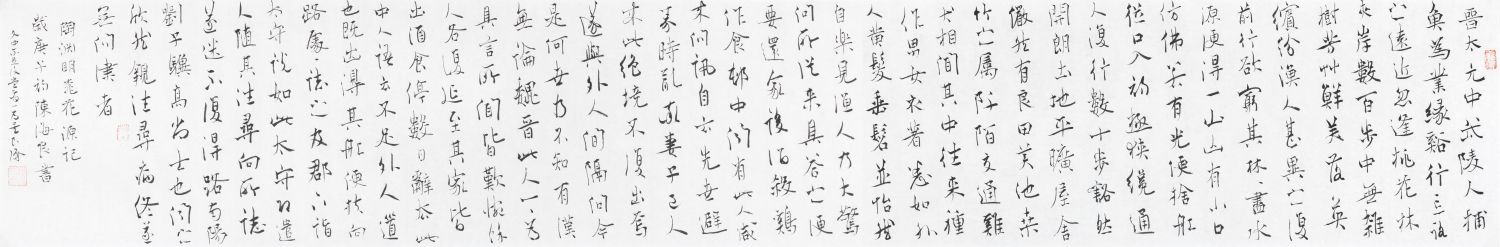 晉太元中武陵人捕
魚為業緣谿行忘路
之遠近忽逢桃花林
夾岸數百步中無雜
樹芳艸鮮美落英
繽紛漁人甚異之復
前行欲窮其林林盡水
源便得一山山有小口
仿佛若有光便捨船
從口入初極狹纔通
人復行數十步豁然
開朗土地平曠屋舍
儼然有良田美池桑
竹之屬阡陌交通雞
犬相聞其中往來種
作男女衣著悉如外
人黃髮垂髫並怡然
自樂見漁人乃大驚
問所從來具答之便
要還家設酒殺鷄
作食邨中聞有此人咸
來問訊自云先世避
秦時亂率妻子邑人
來此絕境不復出焉
遂與外人間隔問今
是何世乃不知有漢
無論魏晉此人一一為
具言所聞皆歎惋餘
人各復延至其家皆
出酒食停數日辭去此
中人語云不足外人道
也既出得其船便扶向
路處處誌之及郡下詣
太守說如此太守即遣
人隨其往尋向所誌
遂迷不復得路南陽
劉子驥高尚士也聞之
欣然親往尋病終遂
無問津者
陶淵明桃花源記
歲庚子初陳海良書